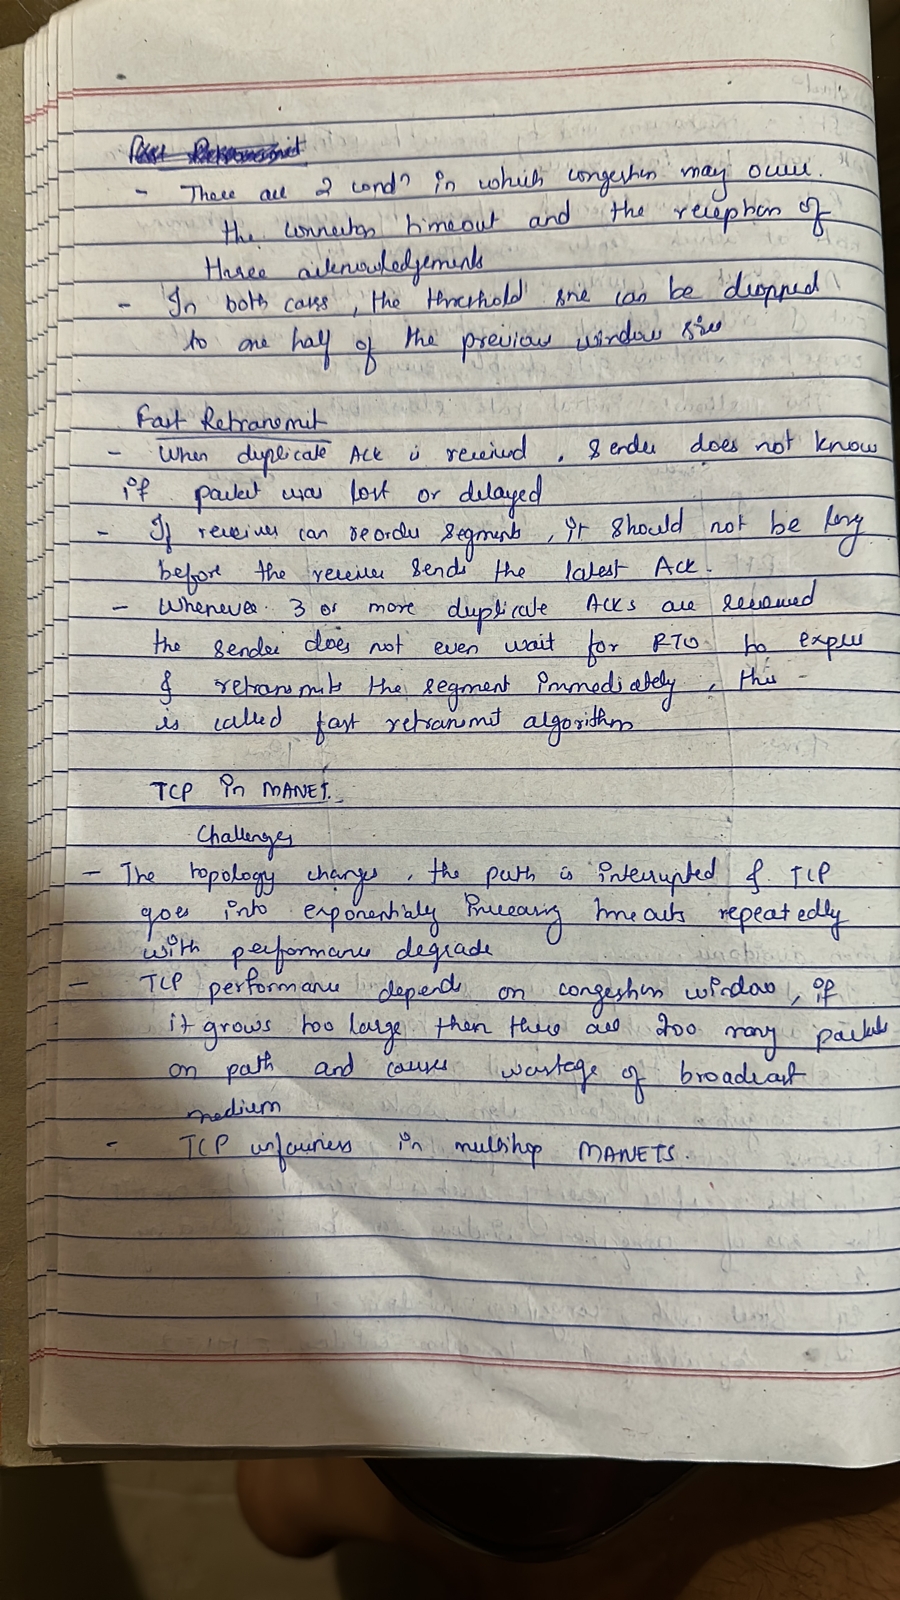 Fast Retransmit
- There are 2 condn in which congestion may occur.
the connection timeout and the reception of
three acknowledgements
- In both cases, the threshold size can be dropped
to one half of the previous window size
Fast Retransmit
- When duplicate Ack is received, sender does not know
if packet was lost or delayed
- If receiver can reorder segments, it should not be long
before the receiver sends the latest Ack.
- Whenever 3 or more duplicate Acks are received
the sender does not even wait for RTO to expire
& retransmits the segment immediately, this -
is called fast retransmit algorithm
TCP in MANET.
Challenges
- The topology changes, the path is interrupted & TCP
goes into exponentialy increasing timeouts repeatedly
with performance degrade
- TCP performance depends on congestion window, if
it grows too large then there are too many packets
on path and causes wastage of broadcast
medium
- TCP unfairness in multihop MANETS.